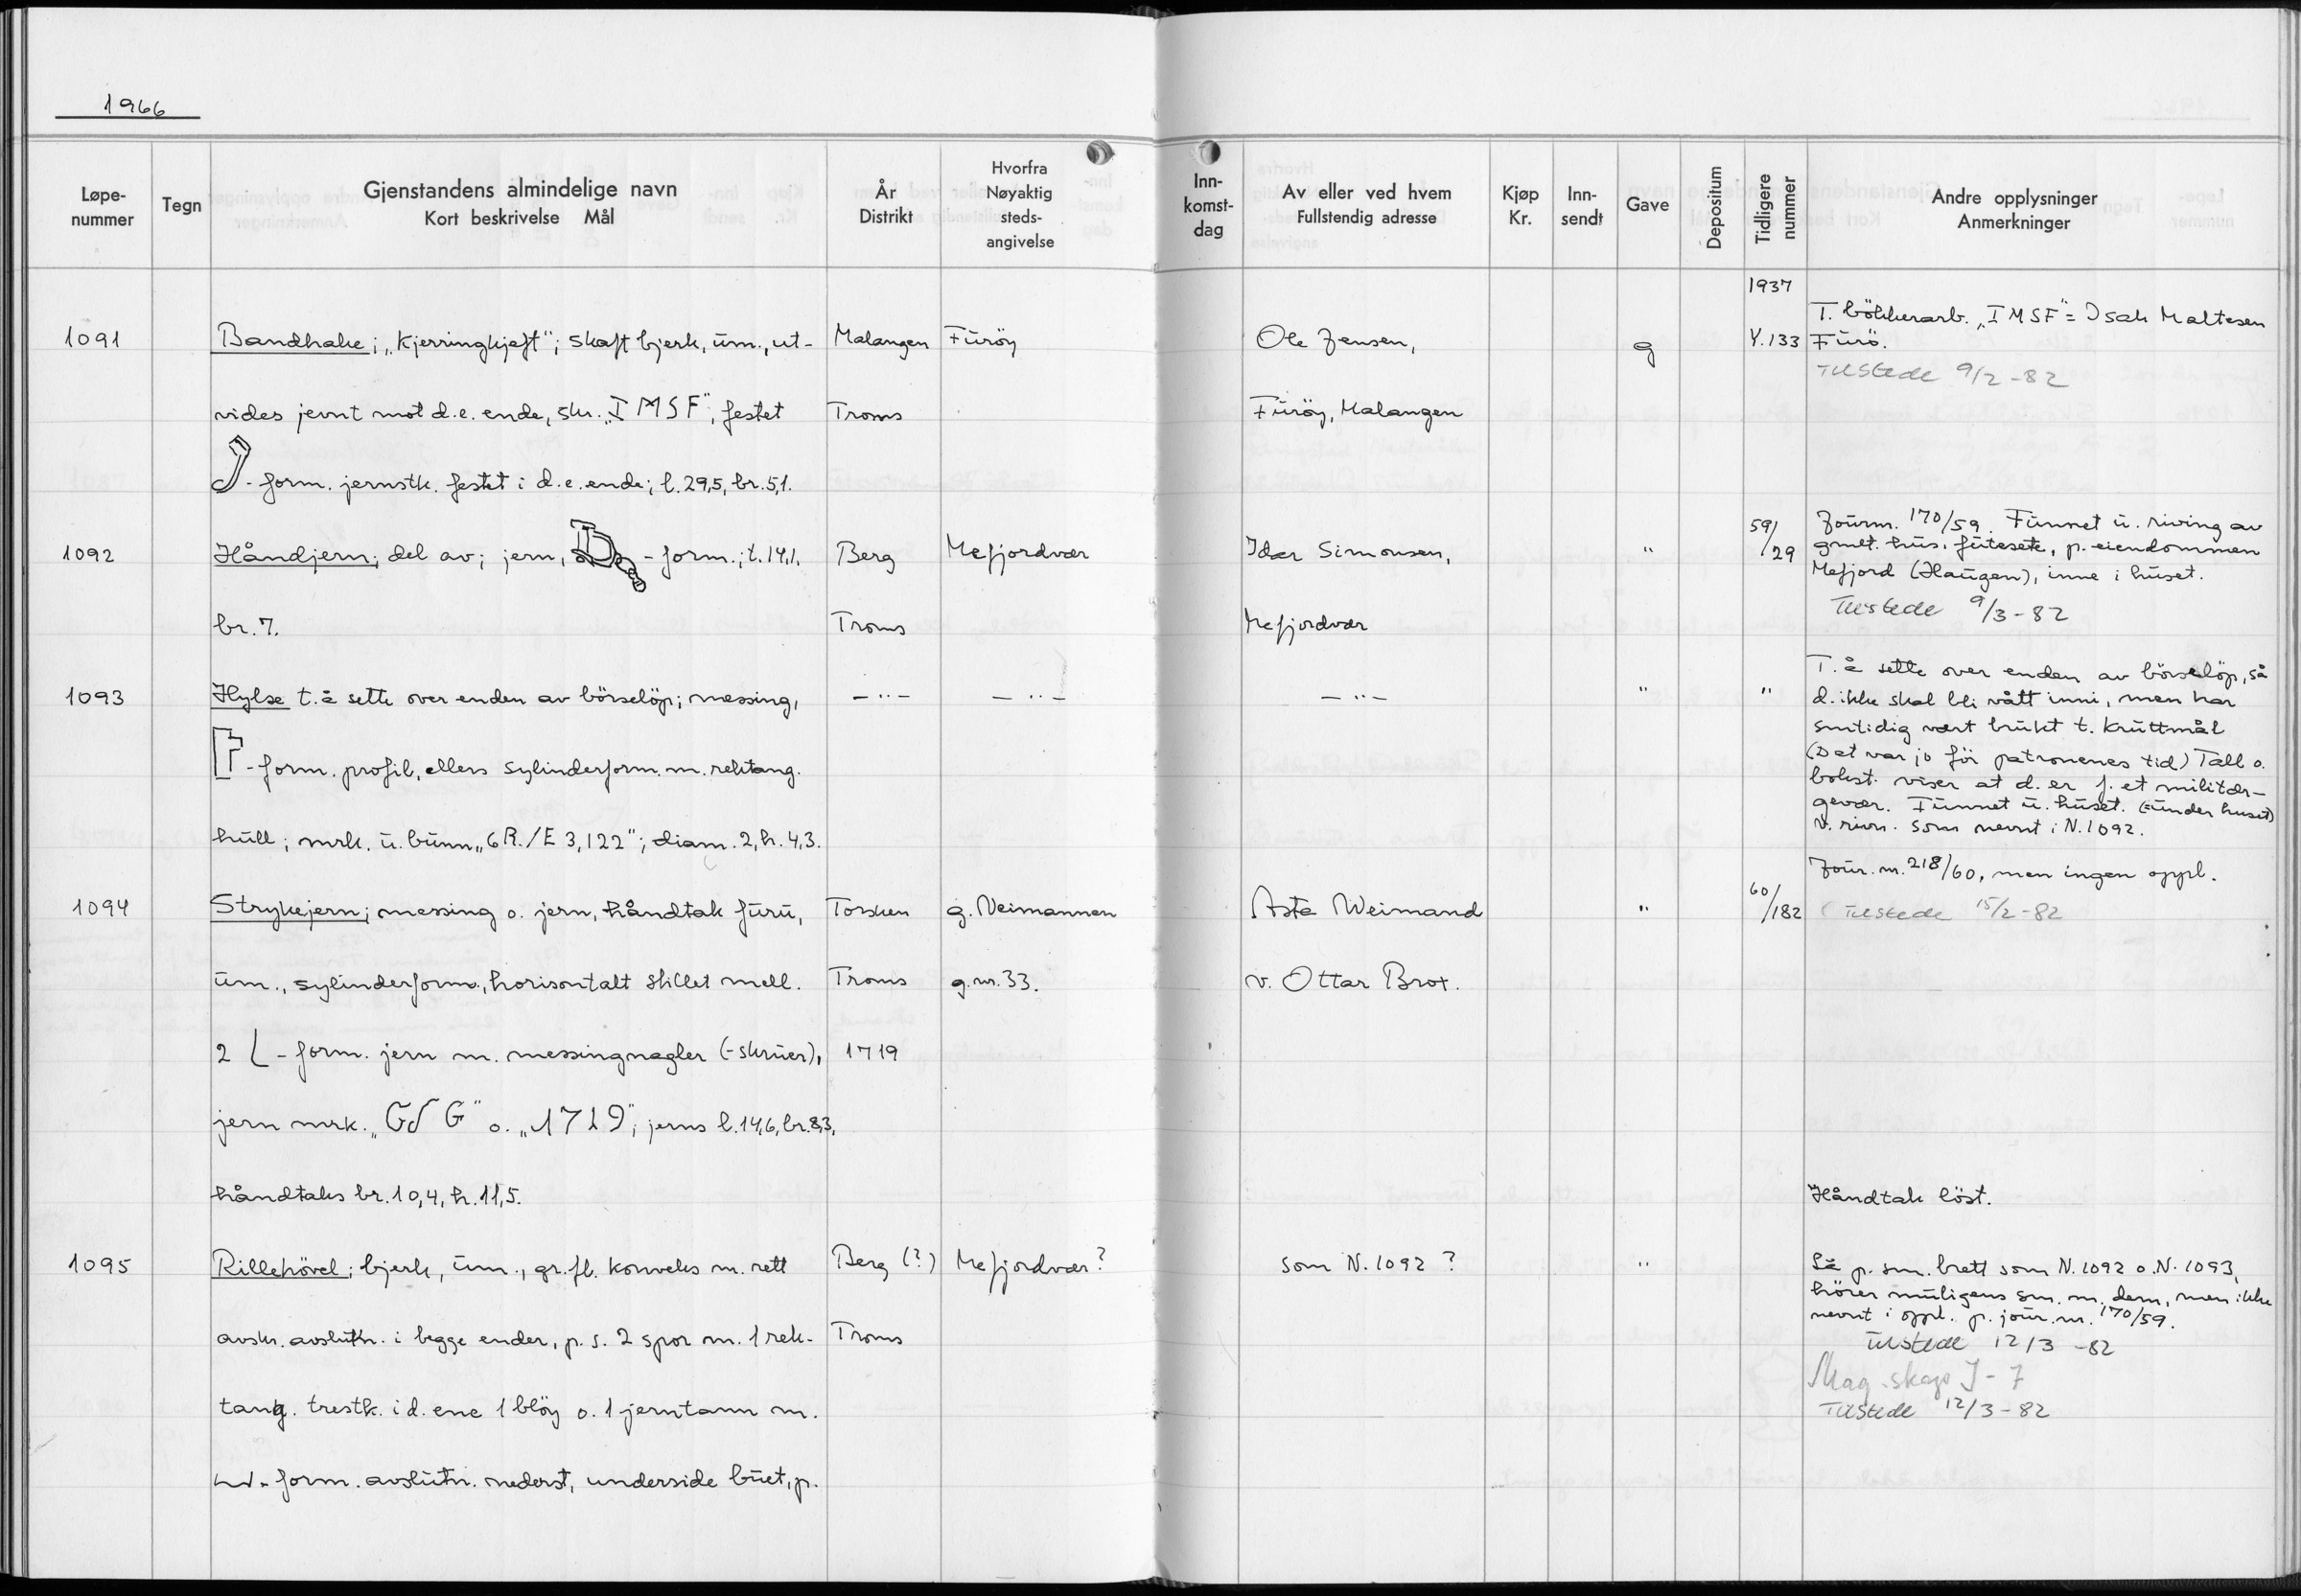 1966
Løpe-
nummer
Tegn
Gjenstandens almindelige navn
Kort beskrivelse Mål
År
Distrikt
Hvorfra
Nøyaktig
steds-
angivelse
Inn-
komst-
dag
Av eller ved hvem
Fullstendig adresse
Kjøp
Kr.
Inn-
sendt
Gave
Depositum
Tidligere
nummer
Andre opplysninger
Anmerkninger
1091
Bandhake; „Kjerringkjeft"; skaft bjerk, üm., ut-
vides jevnt mot d.e. ende, skr. „IMSF", festet
-form. jernstk. festet i d.e. ende; l.29,5, br.5,1.
Malangen
Troms
Füröy
Ole Jensen,
Füröy, Malangen
g
1937
Y.133
T. bökkerarb. „IMSF" = Isak Maltesen
Fürö.
Tilstede 9/2-82
1092
Håndjern; del av; jern, -form.; t.14,1.
br.7.
Berg
Troms
Mefjordvær
Idar Simonsen,
Mefjordvær
"
59/
/29
Journ. 170/59. Fünnet ü. riving av
gmlt. hüs, fütesete, p. eiendommen
Mefjord (Haugen), inne i hüset.
Tilstede 9/3-82
1093
Hylse t.å sette over enden av börselöp; messing,
-form. profil, ellers sylinderform. m. rektang.
hüll; mrk. ü. bünn „6R./E 3,122"; diam.2, h.4,3.
-"-
-"-
-"-
"
"
T. å sette over enden av börselöp, så
d. ikke skal bli vått inni, men har
smtidig vært brükt t. krüttmål
(Det var jo för patronenes tid) Tall o.
bokst. viser at d. er f. et militær-
gevær. Fünnet ü. hüset. (=ünder huset)
v. rivn. som nevnt i N.1092.
1094
Strykejern; messing o. jern, håndtak fürü,
üm., sylinderform., horisontalt stillet mell.
2 L-form. jern m. messingnagler (-skrüer),
jern mrk. „GSG" o. „1719"; jerns l.14,6, br.8,3,
håndtaks br.10,4, h.11,5.
Torsken
Troms
1719
g. Weimannen
g.nr.33.
Asta Weimand
v. Ottar Brox.
"
60/
/182
Jour.nr. 218/60, men ingen oppl.
Tilstede 15/2-82
Håndtak löst.
1095
Rillehövel; bjerk, üm., gr.fl. konveks m. rett
avskr. avslütn. i begge ender, p.s. 2 spor m. 1 rek-
tang. trestk. i d. ene 1 blöy o. 1 jerntann m.
-form. avslütn. nederst, underside büet, p.
Berg (?)
Troms
Mefjordvær?
som N.1092 ?
"
Lå p. sm. brett som N.1092 o. N.1093,
hörer müligens sm. m. dem, men ikke
nevnt i oppl. p. jour.nr. 170/59.
Tilstede 12/3-82
Mag. skap J-7
Tilstede 12/3-82